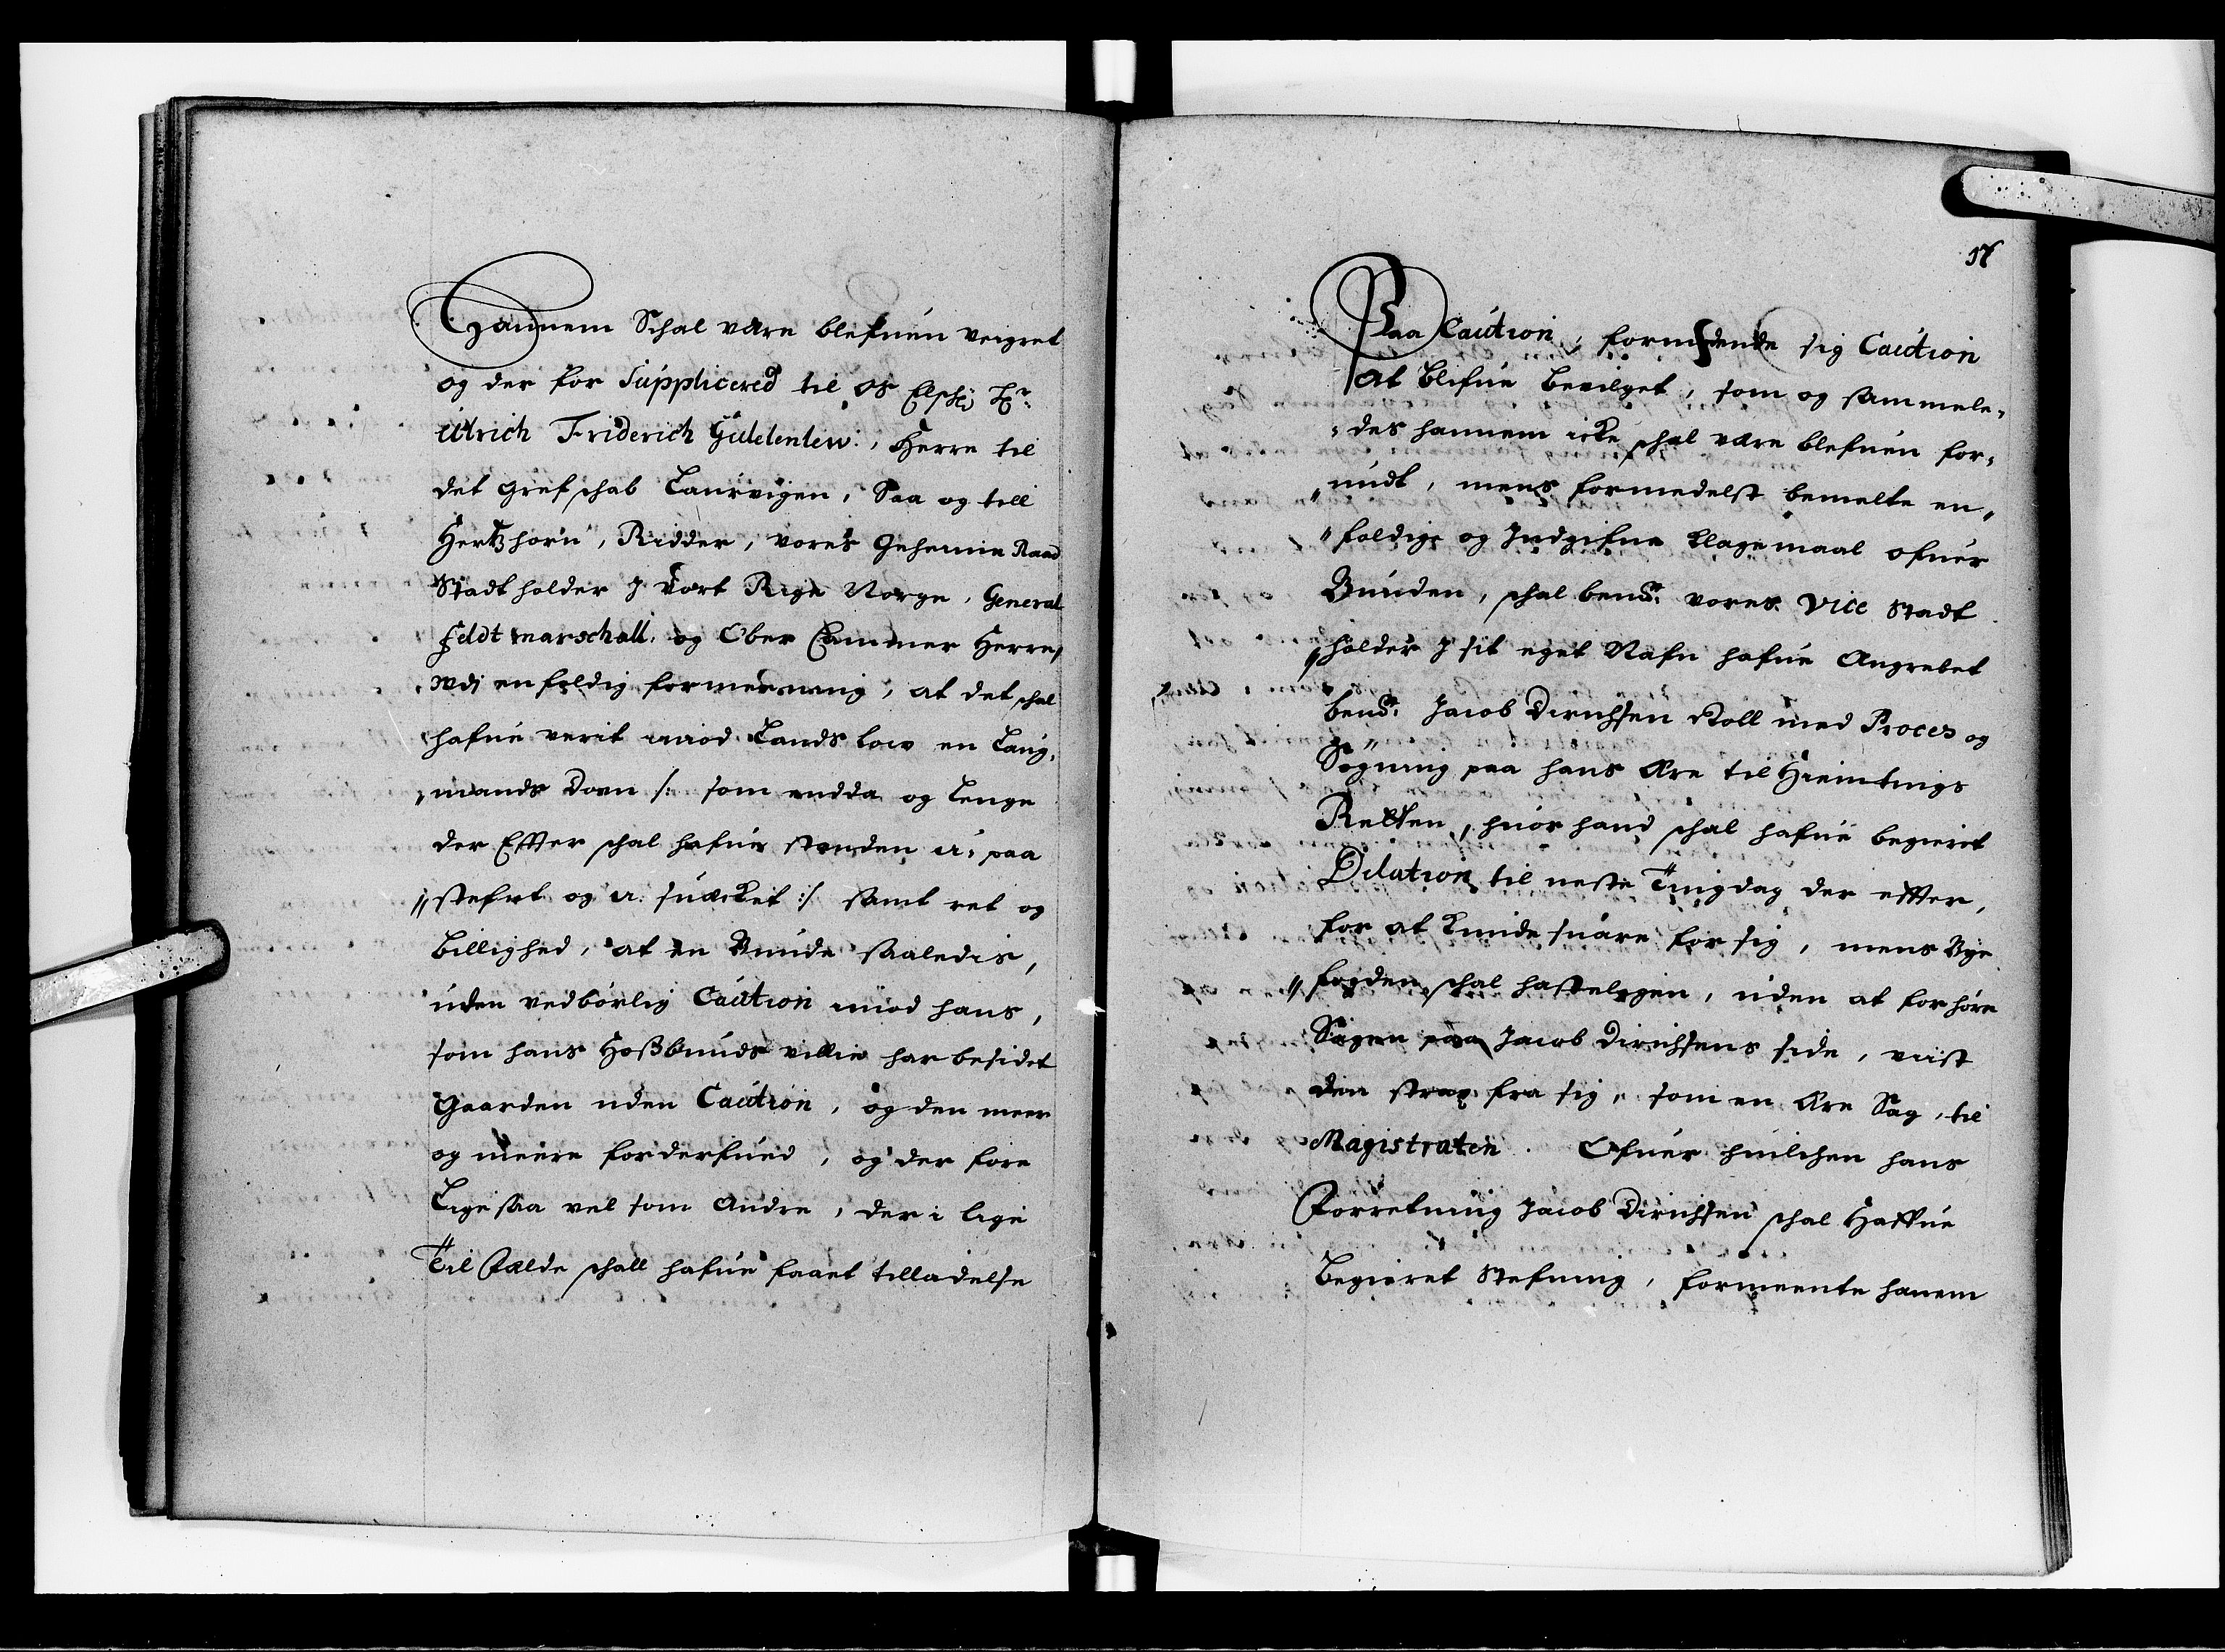 Hannem Schal være blefuen veigret
og der for Supplicered til os Elschl: Hr:
Ulrich Friderich Güldenlew, Herre til
det Grefschab Laurvigen, Saa og till
Hertzhorn, Ridder, vores Geheime Raad
Stadtholder J vort Rige Norge, General
Feldtmarschall og Ober Cammer Herre,
udj enfoldig formeening, at det schal
hafue verit imod Lands low en Laug¬
mands Dom /: som endda og lenge
der Effter schal hafue standen u-paa¬
stefnt og u-suæcket :/ samt ret og
billighed, at en Bunde saaledis,
uden vedbørlig Caution imod hans,
som hans Hosbunds villie har besidet
Gaarden uden Caution, og den meer
og meere forderfued, og der fore
Lige saa vel som Andre, der i lige
Til Felde schall hafue faaet tilladelse
17
Paa Caution, formodende sig Caution
at blifue bevilget, som og sammele¬
des hannem icke schal være blefuen for¬
undt, mens formedelst bemelte en¬
foldige og Jndgifne klagemaal ofuer
Bunden, schal bend: vores Vice Stadt
holder J sit eget Nafn hafue Angrebet
bend: Jacob Dirichsen Stoll med Proces og
Søgning paa hans Ære til Hiemtings
Retten, huor hand schal hafue begierit
Dilation til neste Tingdag der effter,
for at kunde suare for sig, mens Bye
fogden schal hasteligen, uden at forhøre
Sagen paa Jacob Dirichsens side, viist
den strax fra sig, som en Ære Sag, til
Magistraten. Ofuer huilchen hans
Forretning Jacob Dirichsen schal Haffue
begieret Stefning, formeente hanem